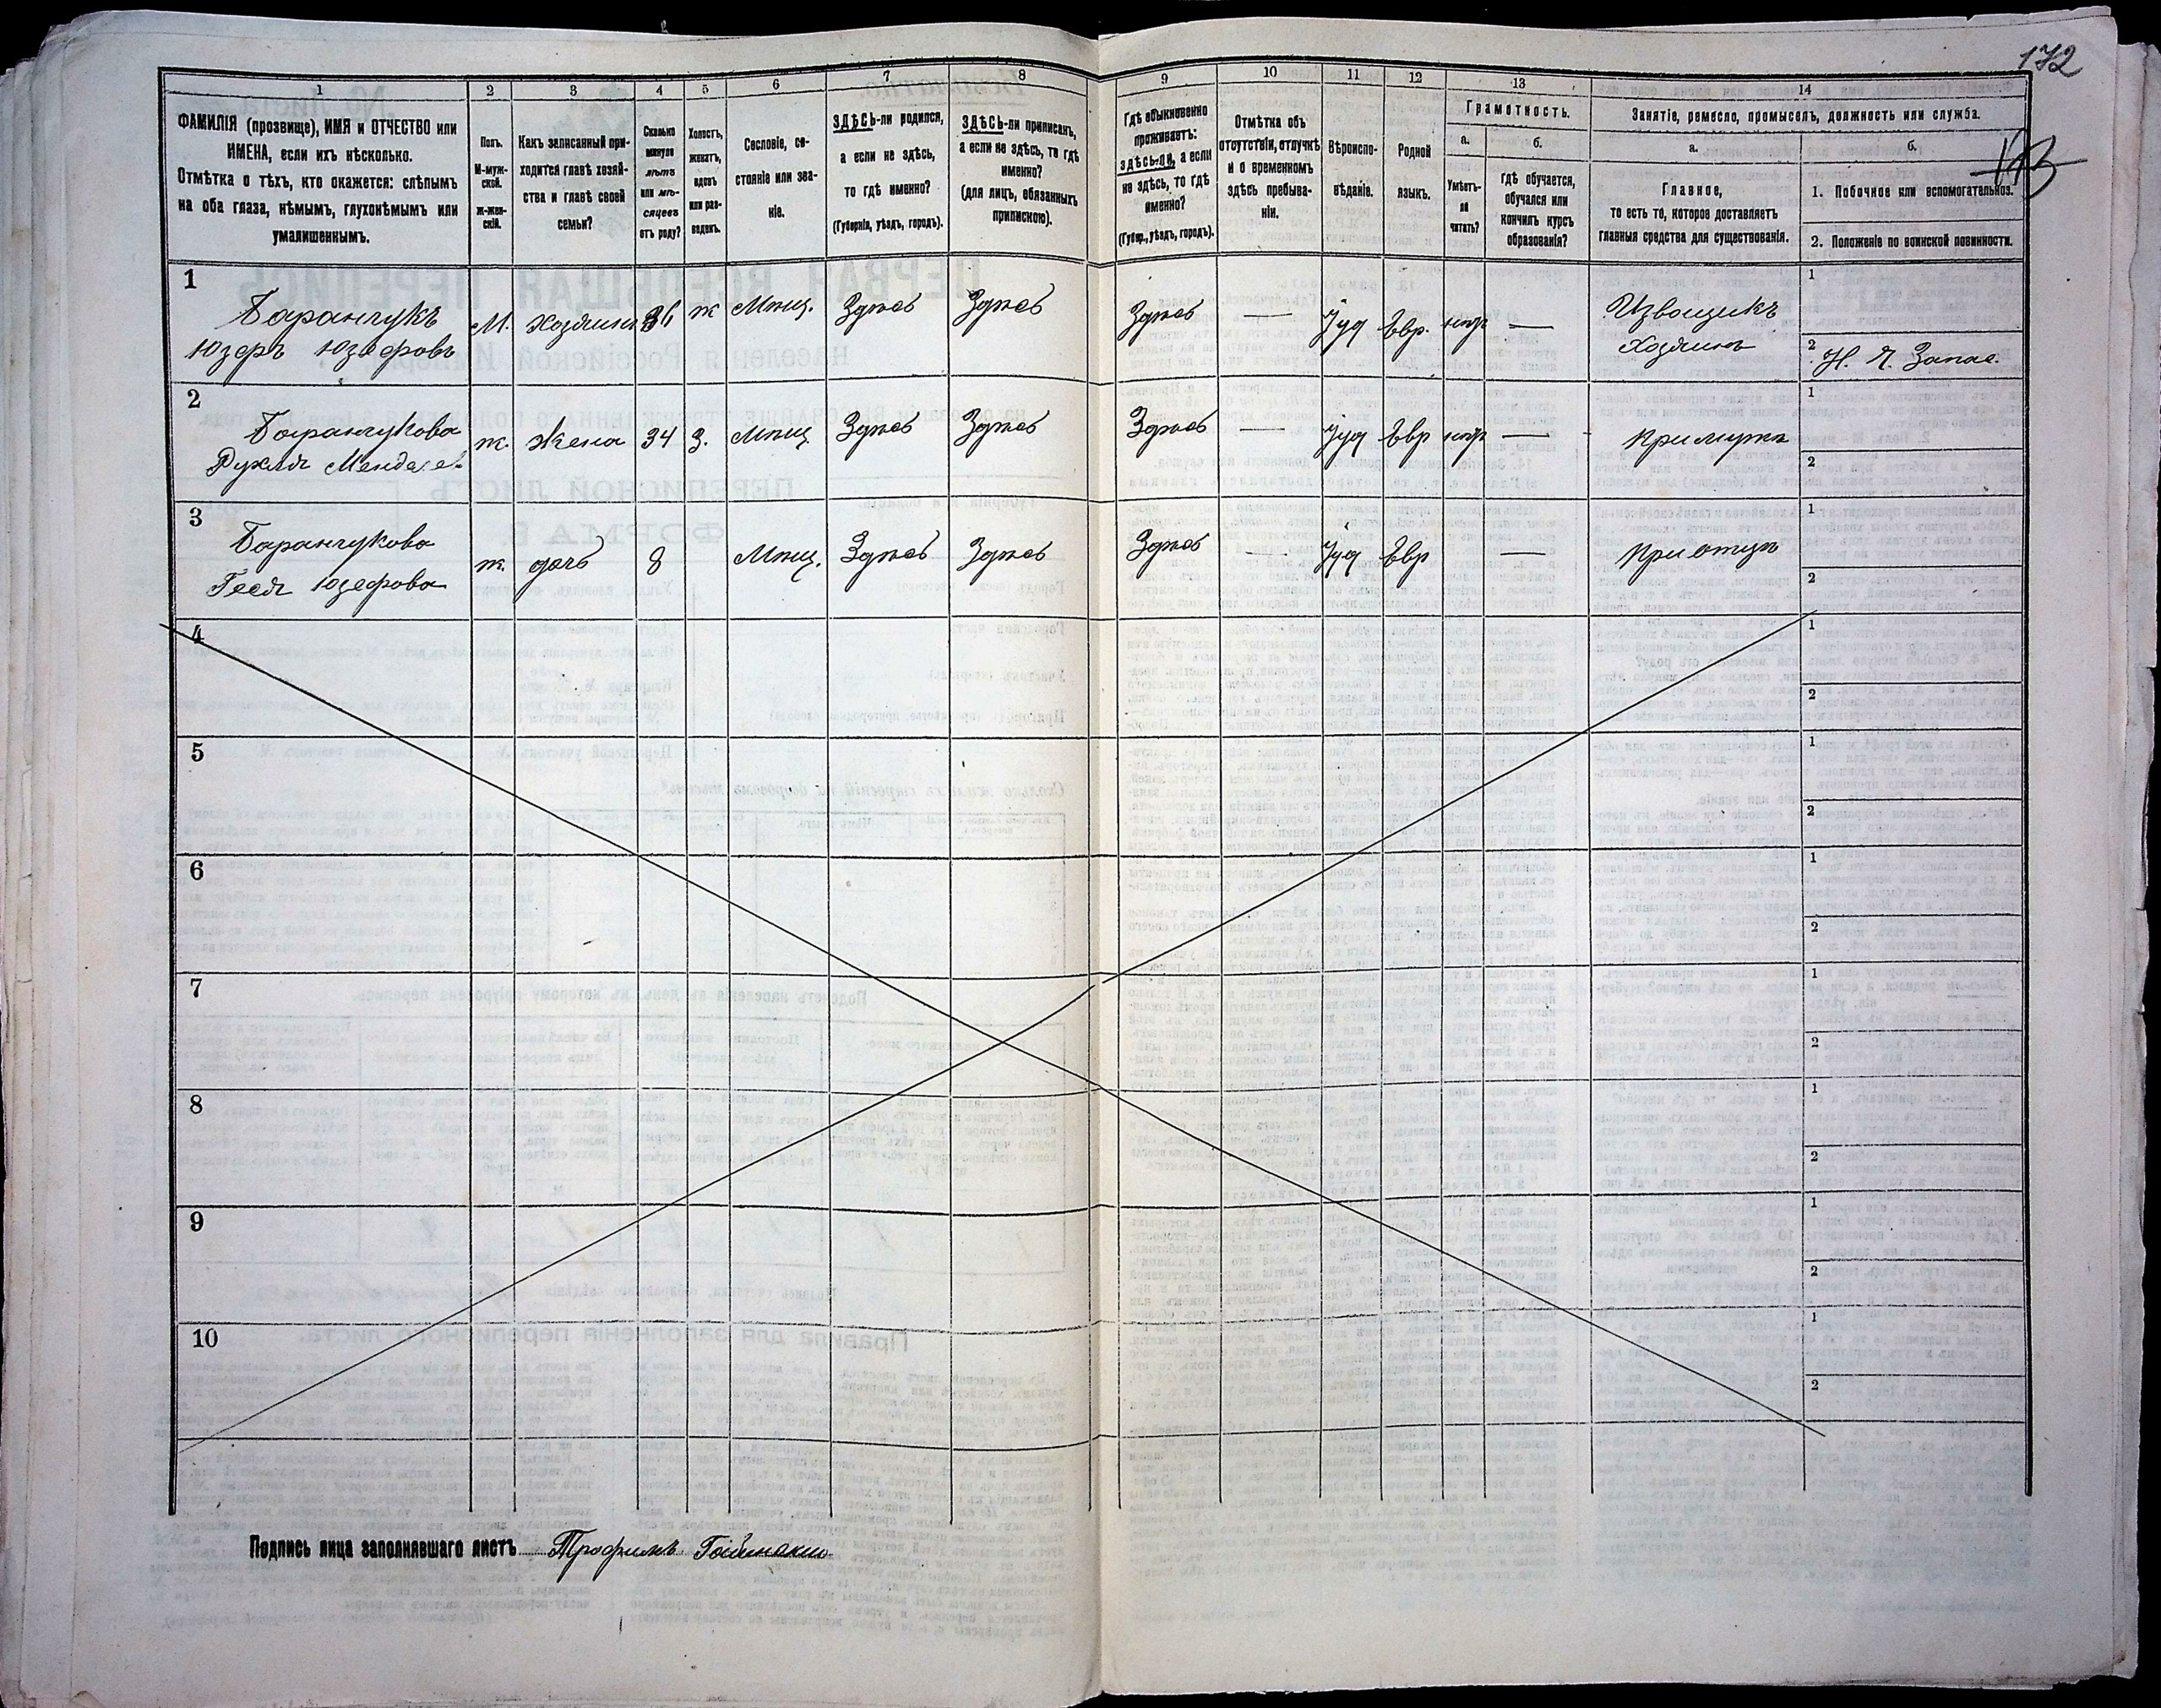 172
1 2 3 4 5 6 7 8 9 10 11 12 13 14
ФАМИЛІЯ (прозвище), ИМЯ и ОТЧЕСТВО или
ИМЕНА, если ихъ нѣсколько.
Отмѣтка о тѣхъ, кто окажется: слѣпымъ
на оба глаза, нѣмымъ, глухонѣмымъ или
умалишеннымъ.
Полъ.
М-муж-
ской.
Ж-жен-
скій.
Какъ записанный при-
ходится главѣ хозяй-
ства и главѣ своей
семьи?
Сколько
минуло
лѣтъ
или мѣ-
сяцевъ
отъ роду?
Холостъ,
женатъ,
вдовъ
или раз-
веденъ.
Сословіе, со-
стояніе или зва-
ніе.
ЗДѢСЬ-ли родился,
а если не здѣсь,
то гдѣ именно?
(Губернія, уѣздъ, городъ).
ЗДѢСЬ-ли приписанъ,
а если не здѣсь, то гдѣ
именно?
(для лицъ, обязанныхъ
припиской).
Гдѣ обыкновенно
проживаетъ:
здѣсь-ли, а если
не здѣсь, то гдѣ
именно?
(Губер., уѣздъ, городъ).
Отмѣтка объ
отсутствіи, отлучкѣ
и о временномъ
здѣсь пребыва-
ніи.
Вѣроиспо-
вѣданіе.
Родной
языкъ.
Грамотность.
а. б.
Умѣетъ-
ли
читать?
Гдѣ обучается,
обучался или
кончилъ курсъ
образованія?
Занятіе, ремесло, промыселъ, должность или служба.
а. б.
Главное,
то есть то, которое доставляетъ
главныя средства для существованія.
1. Побочное или вспомогательное.
2. Положеніе по воинской повинности.
1
Баранчукъ
Юзефъ Юзефовъ
М. Хозяинъ 36 ж Мѣщ. Здѣсь Здѣсь Здѣсь — Іуд Евр. нѣтъ —
Извощикъ
Хозяинъ
1
2 Н. Ч. Запас.
2
Баранчукова
Рухля Мендел
ж. Жена 34 З. Мѣщ Здѣсь Здѣсь Здѣсь — Іуд Евр нѣтъ — При мужѣ
1
2
3
Баранчукова
Геся Юзефова
ж. дочь 8 Мѣщ. Здѣсь Здѣсь Здѣсь — Іуд Евр — При отцѣ
1
2
4
1
2
5
1
2
6
1
2
7
1
2
8
1
2
9
1
2
10
1
2
Подпись лица заполнявшаго листъ Трофимъ